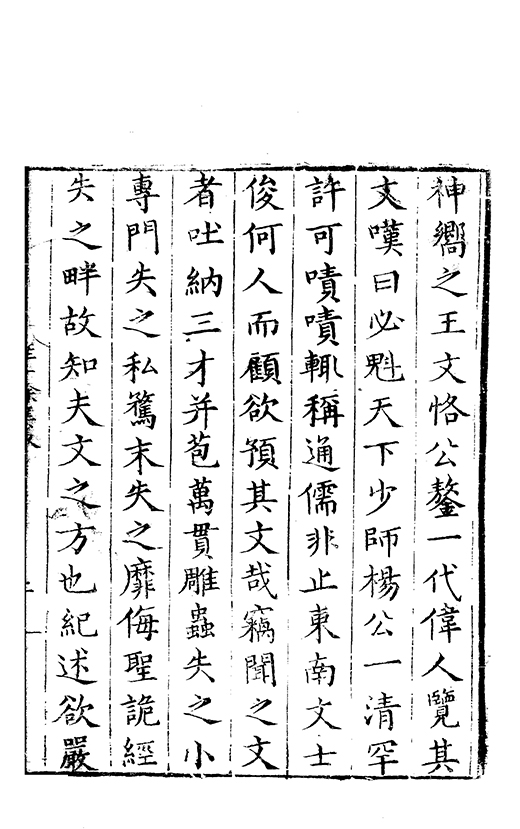 神嚮之王文恪公鏊一代偉人覽其
文嘆曰必魁天下少師楊公一清罕
許可嘖嘖輒稱通儒非止東南文士
俊何人而顧欲預其文哉竊聞之文
者吐納三才并苞萬貫雕蟲失之小
專門失之私騖末失之靡侮聖詭經
失之畔故知夫文之方也紀述欲嚴